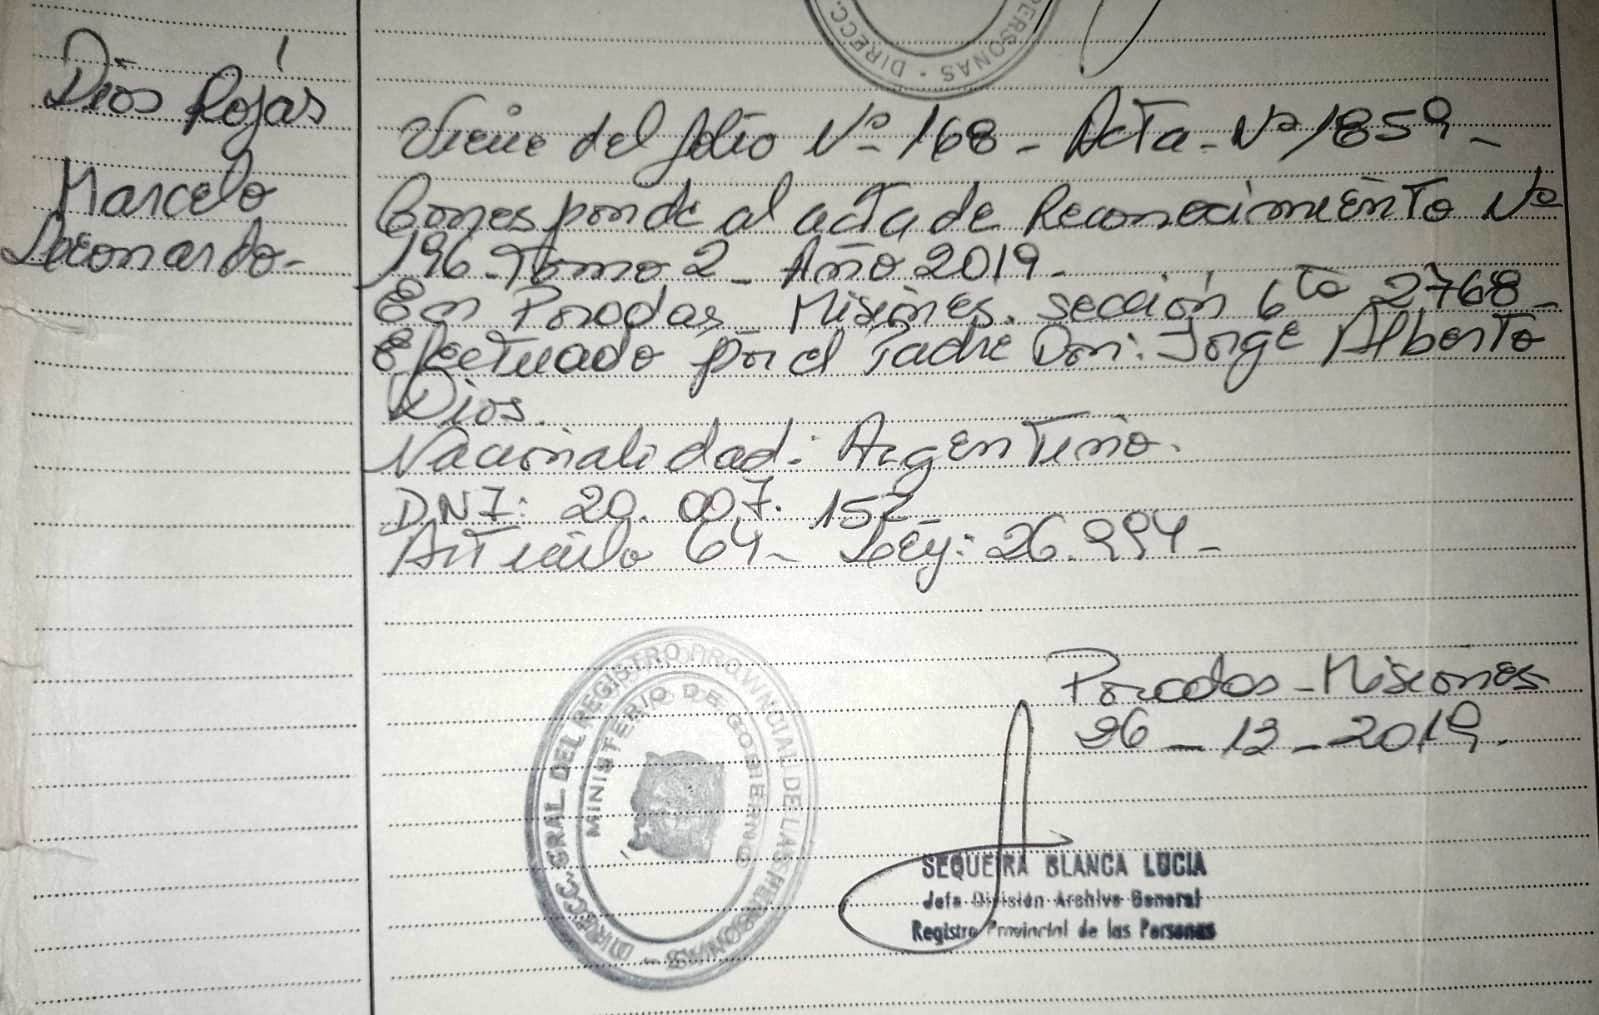 PERSONAS - DIRECC.
Dios Rojás
Marcelo
Leonardo-
Viene del folio Nº 168 - Acta - Nº 1859 -
Corresponde al acta de Reconocimiento Nº
196 - Tomo 2 - Año 2019 -
En Posadas - Misiones. sección 6ta 2768 -
Efectuado por el Padre Don: Jorge Alberto
Dios.
Nacionalidad: Argentino.
DNI: 20.007.152
Artículo 64 - Ley: 26.994 -
Posadas - Misiones
26 - 12 - 2019.
DIRECC. GRAL. DEL REGISTRO PROVINCIAL DE LAS PERSONAS -
MINISTERIO DE GOBIERNO
SEQUEIRA BLANCA LUCIA
Jefa División Archivo General
Registro Provincial de las Personas